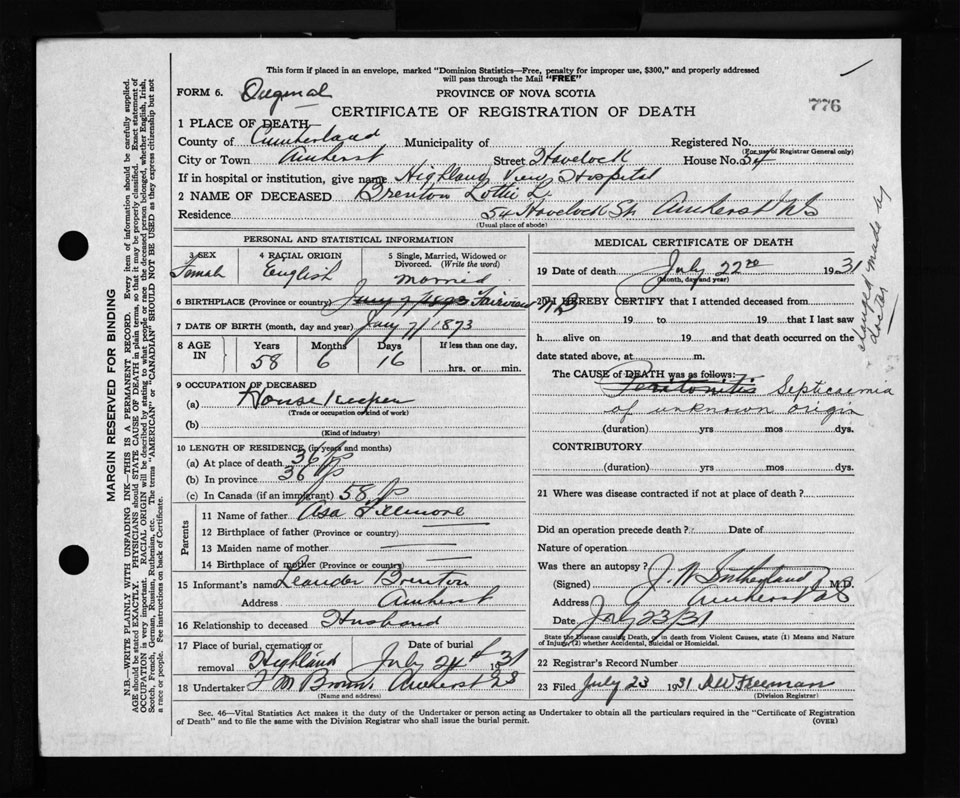 This form if placed in an envelope, marked "Dominion Statistics—Free, penalty for improper use, $300," and properly addressed
will pass through the Mail "FREE"
FORM 6. Original
PROVINCE OF NOVA SCOTIA
776
CERTIFICATE OF REGISTRATION OF DEATH
1 PLACE OF DEATH
County of Cumberland Municipality of Registered No.
(For use of Registrar General only)
City or Town Amherst Street Havelock House No. 54
If in hospital or institution, give name Highland View Hospital
2 NAME OF DECEASED Brenton Lottie L.
Residence 54 Havelock St. Amherst NS
(Usual place of abode)
PERSONAL AND STATISTICAL INFORMATION
3 SEX 4 RACIAL ORIGIN 5 Single, Married, Widowed or
Divorced. (Write the word)
Female English Married
6 BIRTHPLACE (Province or country) Fairview NB
7 DATE OF BIRTH (month, day and year) Jany 7/1873
8 AGE IN Years Months Days If less than one day,
58 6 16 hrs. or min.
9 OCCUPATION OF DECEASED
(a) House Keeper
(Trade or occupation or kind of work)
(b)
(Kind of industry)
10 LENGTH OF RESIDENCE (in years and months)
(a) At place of death 36
(b) In province 36
(c) In Canada (if an immigrant) 58
Parents
11 Name of father Asa Fillmore
12 Birthplace of father (Province or country)
13 Maiden name of mother
14 Birthplace of mother (Province or country)
15 Informant's name Leander Brenton
Address Amherst
16 Relationship to deceased Husband
17 Place of burial, cremation or Date of burial
removal Highland July 24 1931
18 Undertaker Amherst NS
(Name and address)
MEDICAL CERTIFICATE OF DEATH
19 Date of death July 22 1931
(month, day and year)
20 I HEREBY CERTIFY that I attended deceased from
19 to 19 that I last saw
h alive on 19 and that death occurred on the
date stated above, at m.
The CAUSE of DEATH was as follows:
Peritonitis Septicemia
of unknown origin
(duration) yrs mos dys.
CONTRIBUTORY
(duration) yrs mos dys.
21 Where was disease contracted if not at place of death?
Did an operation precede death? Date of
Nature of operation
Was there an autopsy?
(Signed) J. W. Sutherland M.D.
Address Amherst NS
Date July 23/31
State the Disease causing Death, or in death from Violent Causes, state (1) Means and Nature
of Injury, (2) whether Accidental, Suicidal or Homicidal.
22 Registrar's Record Number
23 Filed July 23 1931 Freeman
(Division Registrar)
changed made by
doctor
Sec. 46—Vital Statistics Act makes it the duty of the Undertaker or person acting as Undertaker to obtain all the particulars required in the "Certificate of Registration
of Death" and to file the same with the Division Registrar who shall issue the burial permit.
(OVER)
MARGIN RESERVED FOR BINDING
N.B.—WRITE PLAINLY WITH UNFADING INK—THIS IS A PERMANENT RECORD. Every item of information should be carefully supplied.
AGE should be stated EXACTLY. PHYSICIANS should STATE CAUSE OF DEATH in plain terms, so that it may be properly classified. Exact statement of
OCCUPATION is very important. RACIAL ORIGIN will be described by stating to what people or race the deceased person belonged, whether English, Irish,
Scotch, French, German, Russian, Ruthenian, etc. The terms "AMERICAN" or "CANADIAN" SHOULD NOT BE USED as they express citizenship but not
a race or people. See instructions on back of Certificate.